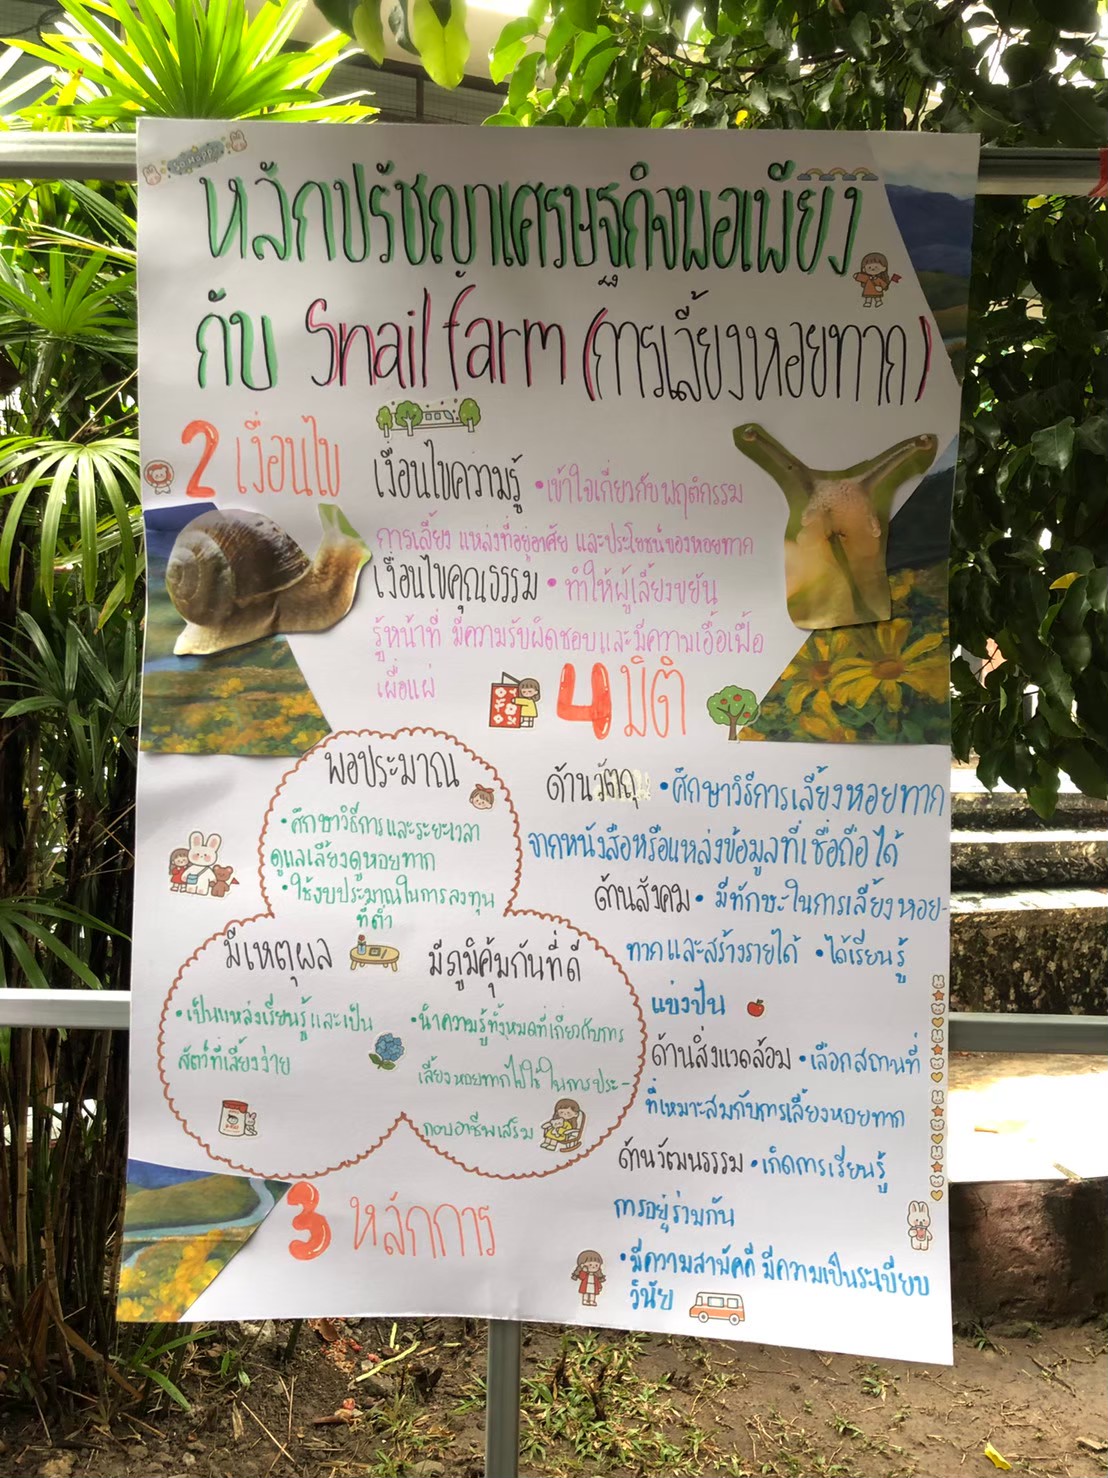 หลักปรัชญาเศรษฐกิจพอเพียง
กับ Snail farm (การเลี้ยงหอยทาก)
2 เงื่อนไข
เงื่อนไขความรู้ • เข้าใจเกี่ยวกับพฤติกรรม
การเลี้ยง แหล่งที่อยู่อาศัย และประโยชน์ของหอยทาก
เงื่อนไขคุณธรรม • ทำให้ผู้เลี้ยงขยัน
รู้หน้าที่ มีความรับผิดชอบและมีความเอื้อเฟื้อ
เผื่อแผ่
4 มิติ
พอประมาณ
• ศึกษาวิธีการและระยะเวลา
ดูแลเลี้ยงดูหอยทาก
• ใช้งบประมาณในการลงทุน
ที่ต่ำ
มีเหตุผล
• เป็นแหล่งเรียนรู้และเป็น
สัตว์ที่เลี้ยงง่าย
มีภูมิคุ้มกันที่ดี
• นำความรู้ทั้งหมดที่เกี่ยวกับการ
เลี้ยงหอยทากไปใช้ในการประ-
กอบอาชีพเสริม
3 หลักการ
ด้านวัตถุ • ศึกษาวิธีการเลี้ยงหอยทาก
จากหนังสือหรือแหล่งข้อมูลที่เชื่อถือได้
ด้านสังคม • มีทักษะในการเลี้ยงหอย-
ทากและสร้างรายได้ • ได้เรียนรู้
แบ่งปัน
ด้านสิ่งแวดล้อม • เลือกสถานที่
ที่เหมาะสมกับการเลี้ยงหอยทาก
ด้านวัฒนธรรม • เกิดการเรียนรู้
การอยู่ร่วมกัน
• มีความสามัคคี มีความเป็นระเบียบ
วินัย